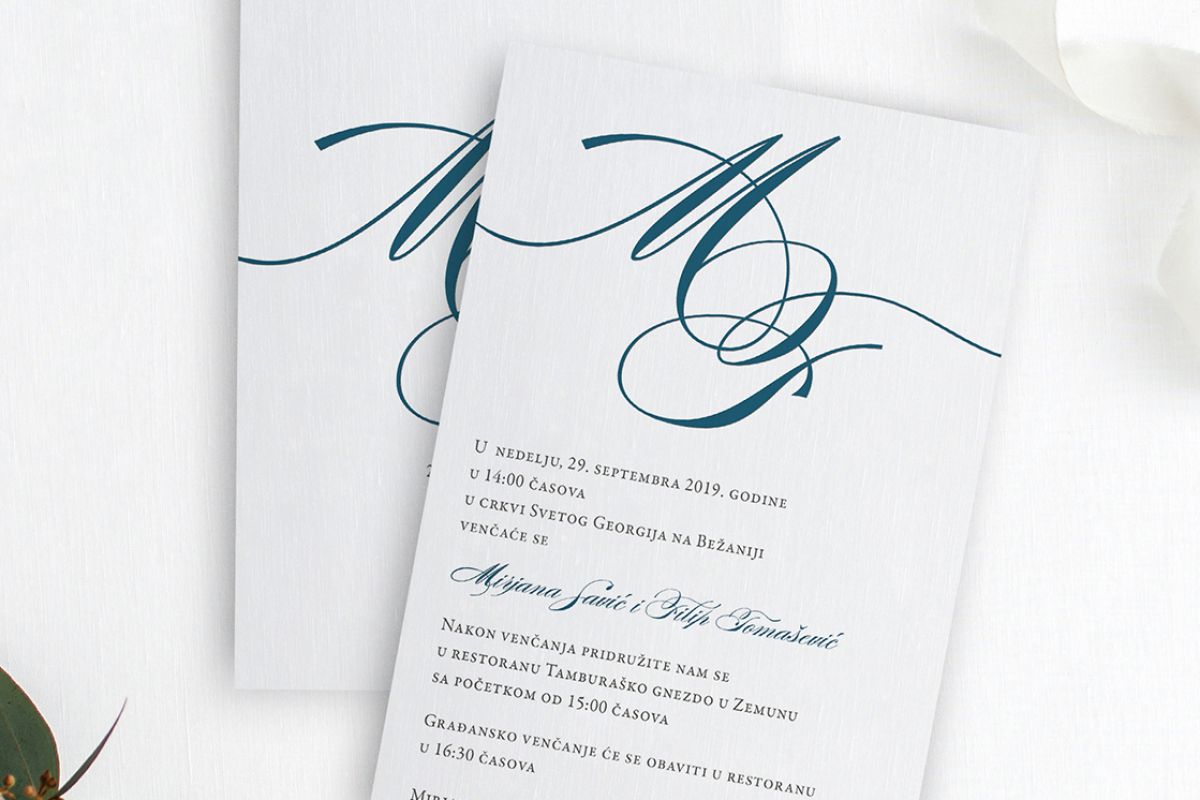 M
M F
U NEDELJU, 29. SEPTEMBRA 2019. GODINE
U 14:00 ČASOVA
U CRKVI SVETOG GEORGIJA NA BEŽANIJI
VENČAĆE SE
Mirjana Savić i Filip Tomašević
NAKON VENČANJA PRIDRUŽITE NAM SE
U RESTORANU TAMBURAŠKO GNEZDO U ZEMUNU
SA POČETKOM OD 15:00 ČASOVA
GRAĐANSKO VENČANJE ĆE SE OBAVITI U RESTORANU
U 16:30 ČASOVA